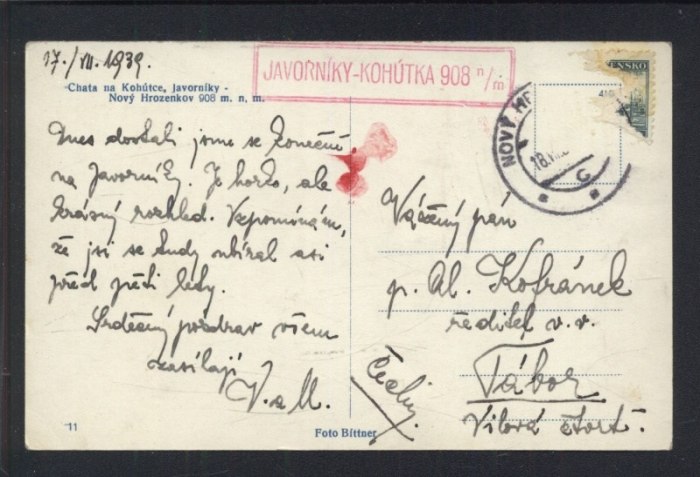 17./VII. 1939.
JAVORNÍKY-KOHÚTKA 908 n/m
Chata na Kohútce, Javorníky -
Nový Hrozenkov 908 m. n. m.
ENSKO
NOVÝ HR
18.VII.
G
Dnes dostali jsme se konečně
na Javorníky. Je horko, ale
krásný rozhled. Vzpomínám,
že jsi se tudy ubíral asi
před pěti lety.
Srdečný pozdrav všem
zasílají
V. a M.
Vážený pán
p. Al. Kofránek
ředitel v. v.
Tábor
Vilová čtvrť.
Čechy.
11
Foto Bittner